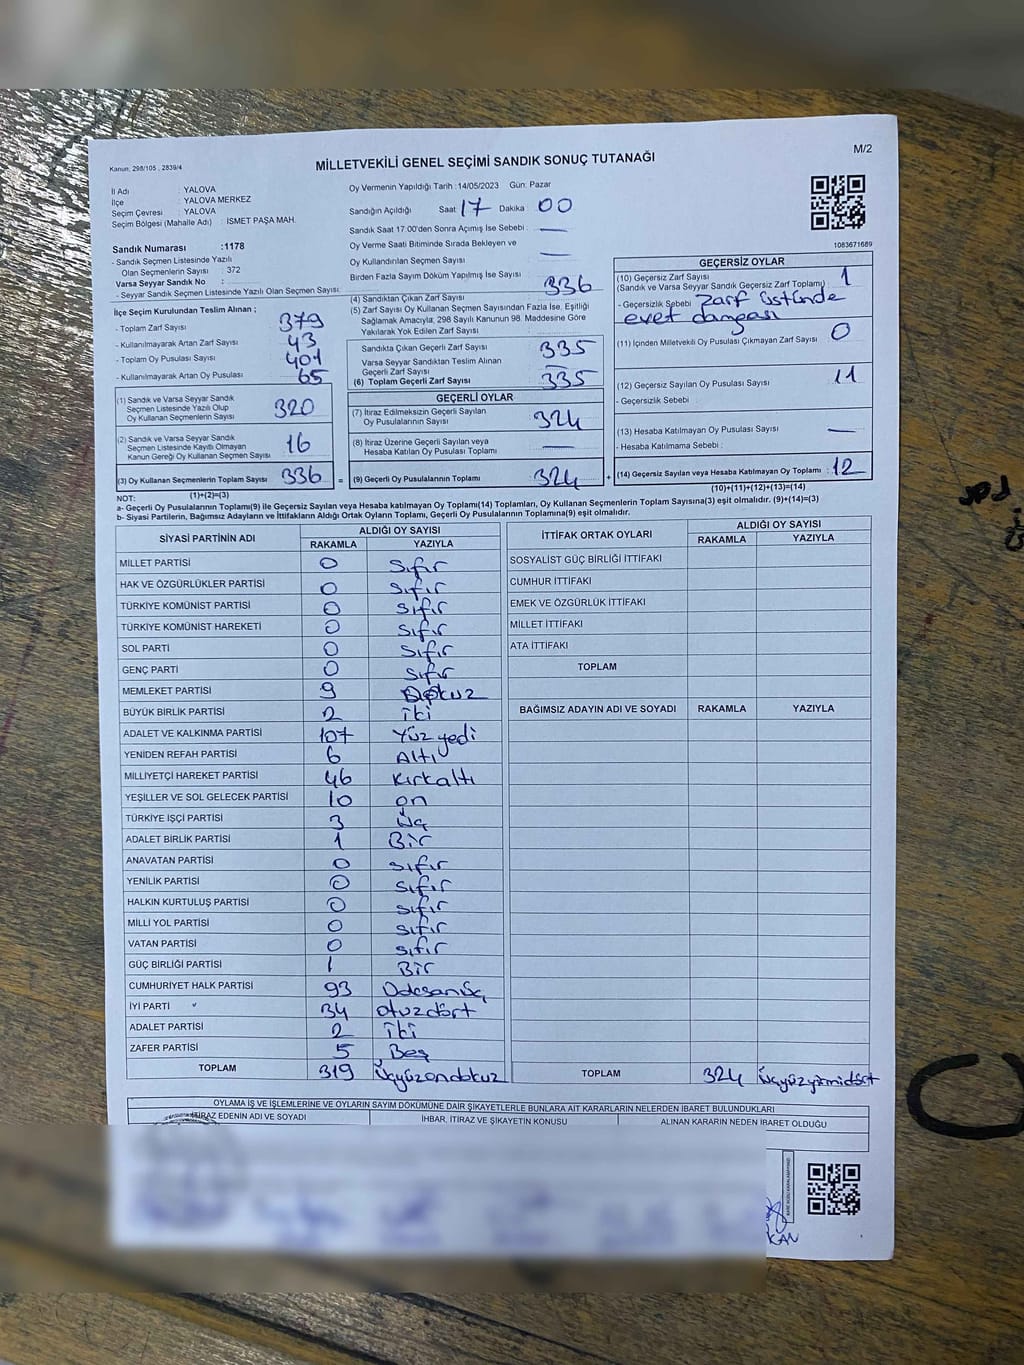 Kanun: 298/105 , 2839/4
MİLLETVEKİLİ GENEL SEÇİMİ SANDIK SONUÇ TUTANAĞI
M/2
İl Adı : YALOVA
İlçe : YALOVA MERKEZ
Seçim Çevresi : YALOVA
Seçim Bölgesi (Mahalle Adı) : İSMET PAŞA MAH.
Oy Vermenin Yapıldığı Tarih :14/05/2023 Gün: Pazar
Sandığın Açıldığı Saat : 17 Dakika : 00
Sandık Saat 17:00'den Sonra Açımış İse Sebebi : —
Oy Verme Saati Bitiminde Sırada Bekleyen ve
Oy Kullandırılan Seçmen Sayısı : —
Birden Fazla Sayım Döküm Yapılmış İse Sayısı :
1083671689
Sandık Numarası :1178
- Sandık Seçmen Listesinde Yazılı
Olan Seçmenlerin Sayısı : 372
Varsa Seyyar Sandık No :
- Seyyar Sandık Seçmen Listesinde Yazılı Olan Seçmen Sayısı:
İlçe Seçim Kurulundan Teslim Alınan ;
- Toplam Zarf Sayısı : 379
- Kullanılmayarak Artan Zarf Sayısı : 43
- Toplam Oy Pusulası Sayısı : 401
- Kullanılmayarak Artan Oy Pusulası : 65
(1) Sandık ve Varsa Seyyar Sandık
Seçmen Listesinde Yazılı Olup
Oy Kullanan Seçmenlerin Sayısı : 320
(2) Sandık ve Varsa Seyyar Sandık
Seçmen Listesinde Kayıtlı Olmayan
Kanun Gereği Oy Kullanan Seçmen Sayısı : 16
(3) Oy Kullanan Seçmenlerin Toplam Sayısı : 336
(1)+(2)=(3)
(4) Sandıktan Çıkan Zarf Sayısı : 336
(5) Zarf Sayısı Oy Kullanan Seçmen Sayısından Fazla İse, Eşitliği
Sağlamak Amacıyla; 298 Sayılı Kanunun 98. Maddesine Göre
Yakılarak Yok Edilen Zarf Sayısı :
Sandıkta Çıkan Geçerli Zarf Sayısı : 335
Varsa Seyyar Sandıktan Teslim Alınan
Geçerli Zarf Sayısı : —
(6) Toplam Geçerli Zarf Sayısı : 335
GEÇERLİ OYLAR
(7) İtiraz Edilmeksizin Geçerli Sayılan
Oy Pusulalarının Sayısı : 324
(8) İtiraz Üzerine Geçerli Sayılan veya
Hesaba Katılan Oy Pusulası Toplamı : —
= (9) Geçerli Oy Pusulalarının Toplamı : 324
GEÇERSİZ OYLAR
(10) Geçersiz Zarf Sayısı
(Sandık ve Varsa Seyyar Sandık Geçersiz Zarf Toplamı) : 1
- Geçersizlik Sebebi : Zarf üstünde
evet damgası
(11) İçinden Milletvekili Oy Pusulası Çıkmayan Zarf Sayısı : 0
(12) Geçersiz Sayılan Oy Pusulası Sayısı : 11
- Geçersizlik Sebebi :
(13) Hesaba Katılmayan Oy Pusulası Sayısı : —
- Hesaba Katılmama Sebebi :
+ (14) Geçersiz Sayılan veya Hesaba Katılmayan Oy Toplamı : 12
(10)+(11)+(12)+(13)=(14)
NOT:
a- Geçerli Oy Pusulalarının Toplamı(9) ile Geçersiz Sayılan veya Hesaba katılmayan Oy Toplamı(14) Toplamları, Oy Kullanan Seçmenlerin Toplam Sayısına(3) eşit olmalıdır. (9)+(14)=(3)
b- Siyasi Partilerin, Bağımsız Adayların ve İttifakların Aldığı Ortak Oyların Toplamı, Geçerli Oy Pusulalarının Toplamına(9) eşit olmalıdır.
SİYASİ PARTİNİN ADI ALDIĞI OY SAYISI
RAKAMLA YAZIYLA
MİLLET PARTİSİ 0 Sıfır
HAK VE ÖZGÜRLÜKLER PARTİSİ 0 Sıfır
TÜRKİYE KOMÜNİST PARTİSİ 0 Sıfır
TÜRKİYE KOMÜNİST HAREKETİ 0 Sıfır
SOL PARTİ 0 Sıfır
GENÇ PARTİ 0 Sıfır
MEMLEKET PARTİSİ 9 Dokuz
BÜYÜK BİRLİK PARTİSİ 2 İki
ADALET VE KALKINMA PARTİSİ 107 Yüz yedi
YENİDEN REFAH PARTİSİ 6 Altı
MİLLİYETÇİ HAREKET PARTİSİ 46 Kırkaltı
YEŞİLLER VE SOL GELECEK PARTİSİ 10 on
TÜRKİYE İŞÇİ PARTİSİ 3 Üç
ADALET BİRLİK PARTİSİ 1 Bir
ANAVATAN PARTİSİ 0 Sıfır
YENİLİK PARTİSİ 0 Sıfır
HALKIN KURTULUŞ PARTİSİ 0 Sıfır
MİLLİ YOL PARTİSİ 0 Sıfır
VATAN PARTİSİ 0 Sıfır
GÜÇ BİRLİĞİ PARTİSİ 1 Bir
CUMHURİYET HALK PARTİSİ 93
İYİ PARTİ 34 otuzdört
ADALET PARTİSİ 2 İki
ZAFER PARTİSİ 5 Beş
TOPLAM 319 Üçyüzondokuz
İTTİFAK ORTAK OYLARI ALDIĞI OY SAYISI
RAKAMLA YAZIYLA
SOSYALİST GÜÇ BİRLİĞİ İTTİFAKI
CUMHUR İTTİFAKI
EMEK VE ÖZGÜRLÜK İTTİFAKI
MİLLET İTTİFAKI
ATA İTTİFAKI
TOPLAM
BAĞIMSIZ ADAYIN ADI VE SOYADI RAKAMLA YAZIYLA
TOPLAM 324 Üçyüzyirmidört
OYLAMA İŞ VE İŞLEMLERİNE VE OYLARIN SAYIM DÖKÜMÜNE DAİR ŞİKAYETLERLE BUNLARA AİT KARARLARIN NELERDEN İBARET BULUNDUKLARI
İTİRAZ EDENİN ADI VE SOYADI İHBAR, İTİRAZ VE ŞİKAYETİN KONUSU ALINAN KARARIN NEDEN İBARET OLDUĞU